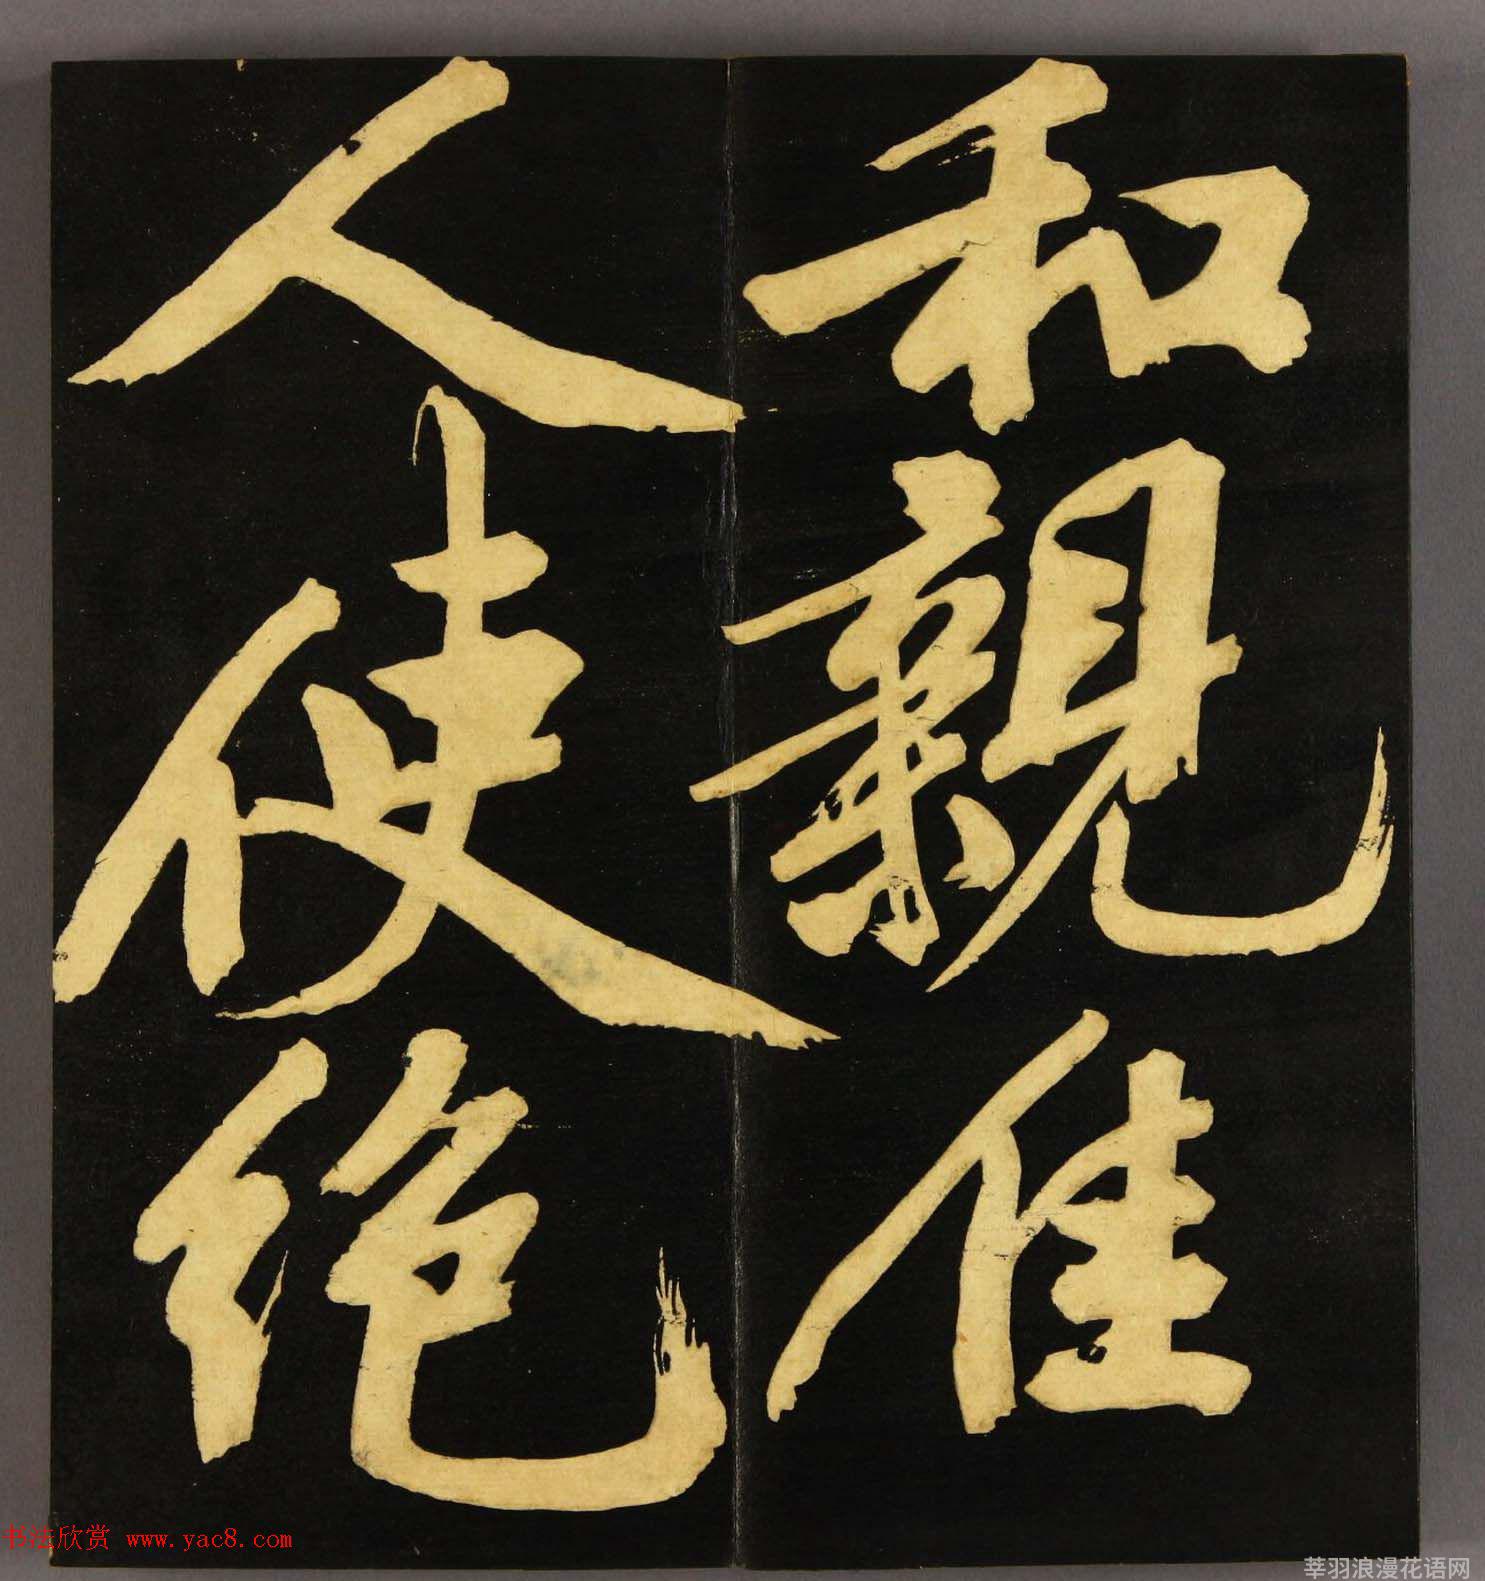 和親佳
人使絶
书法欣赏 www.yac8.com
莘羽浪漫花语网